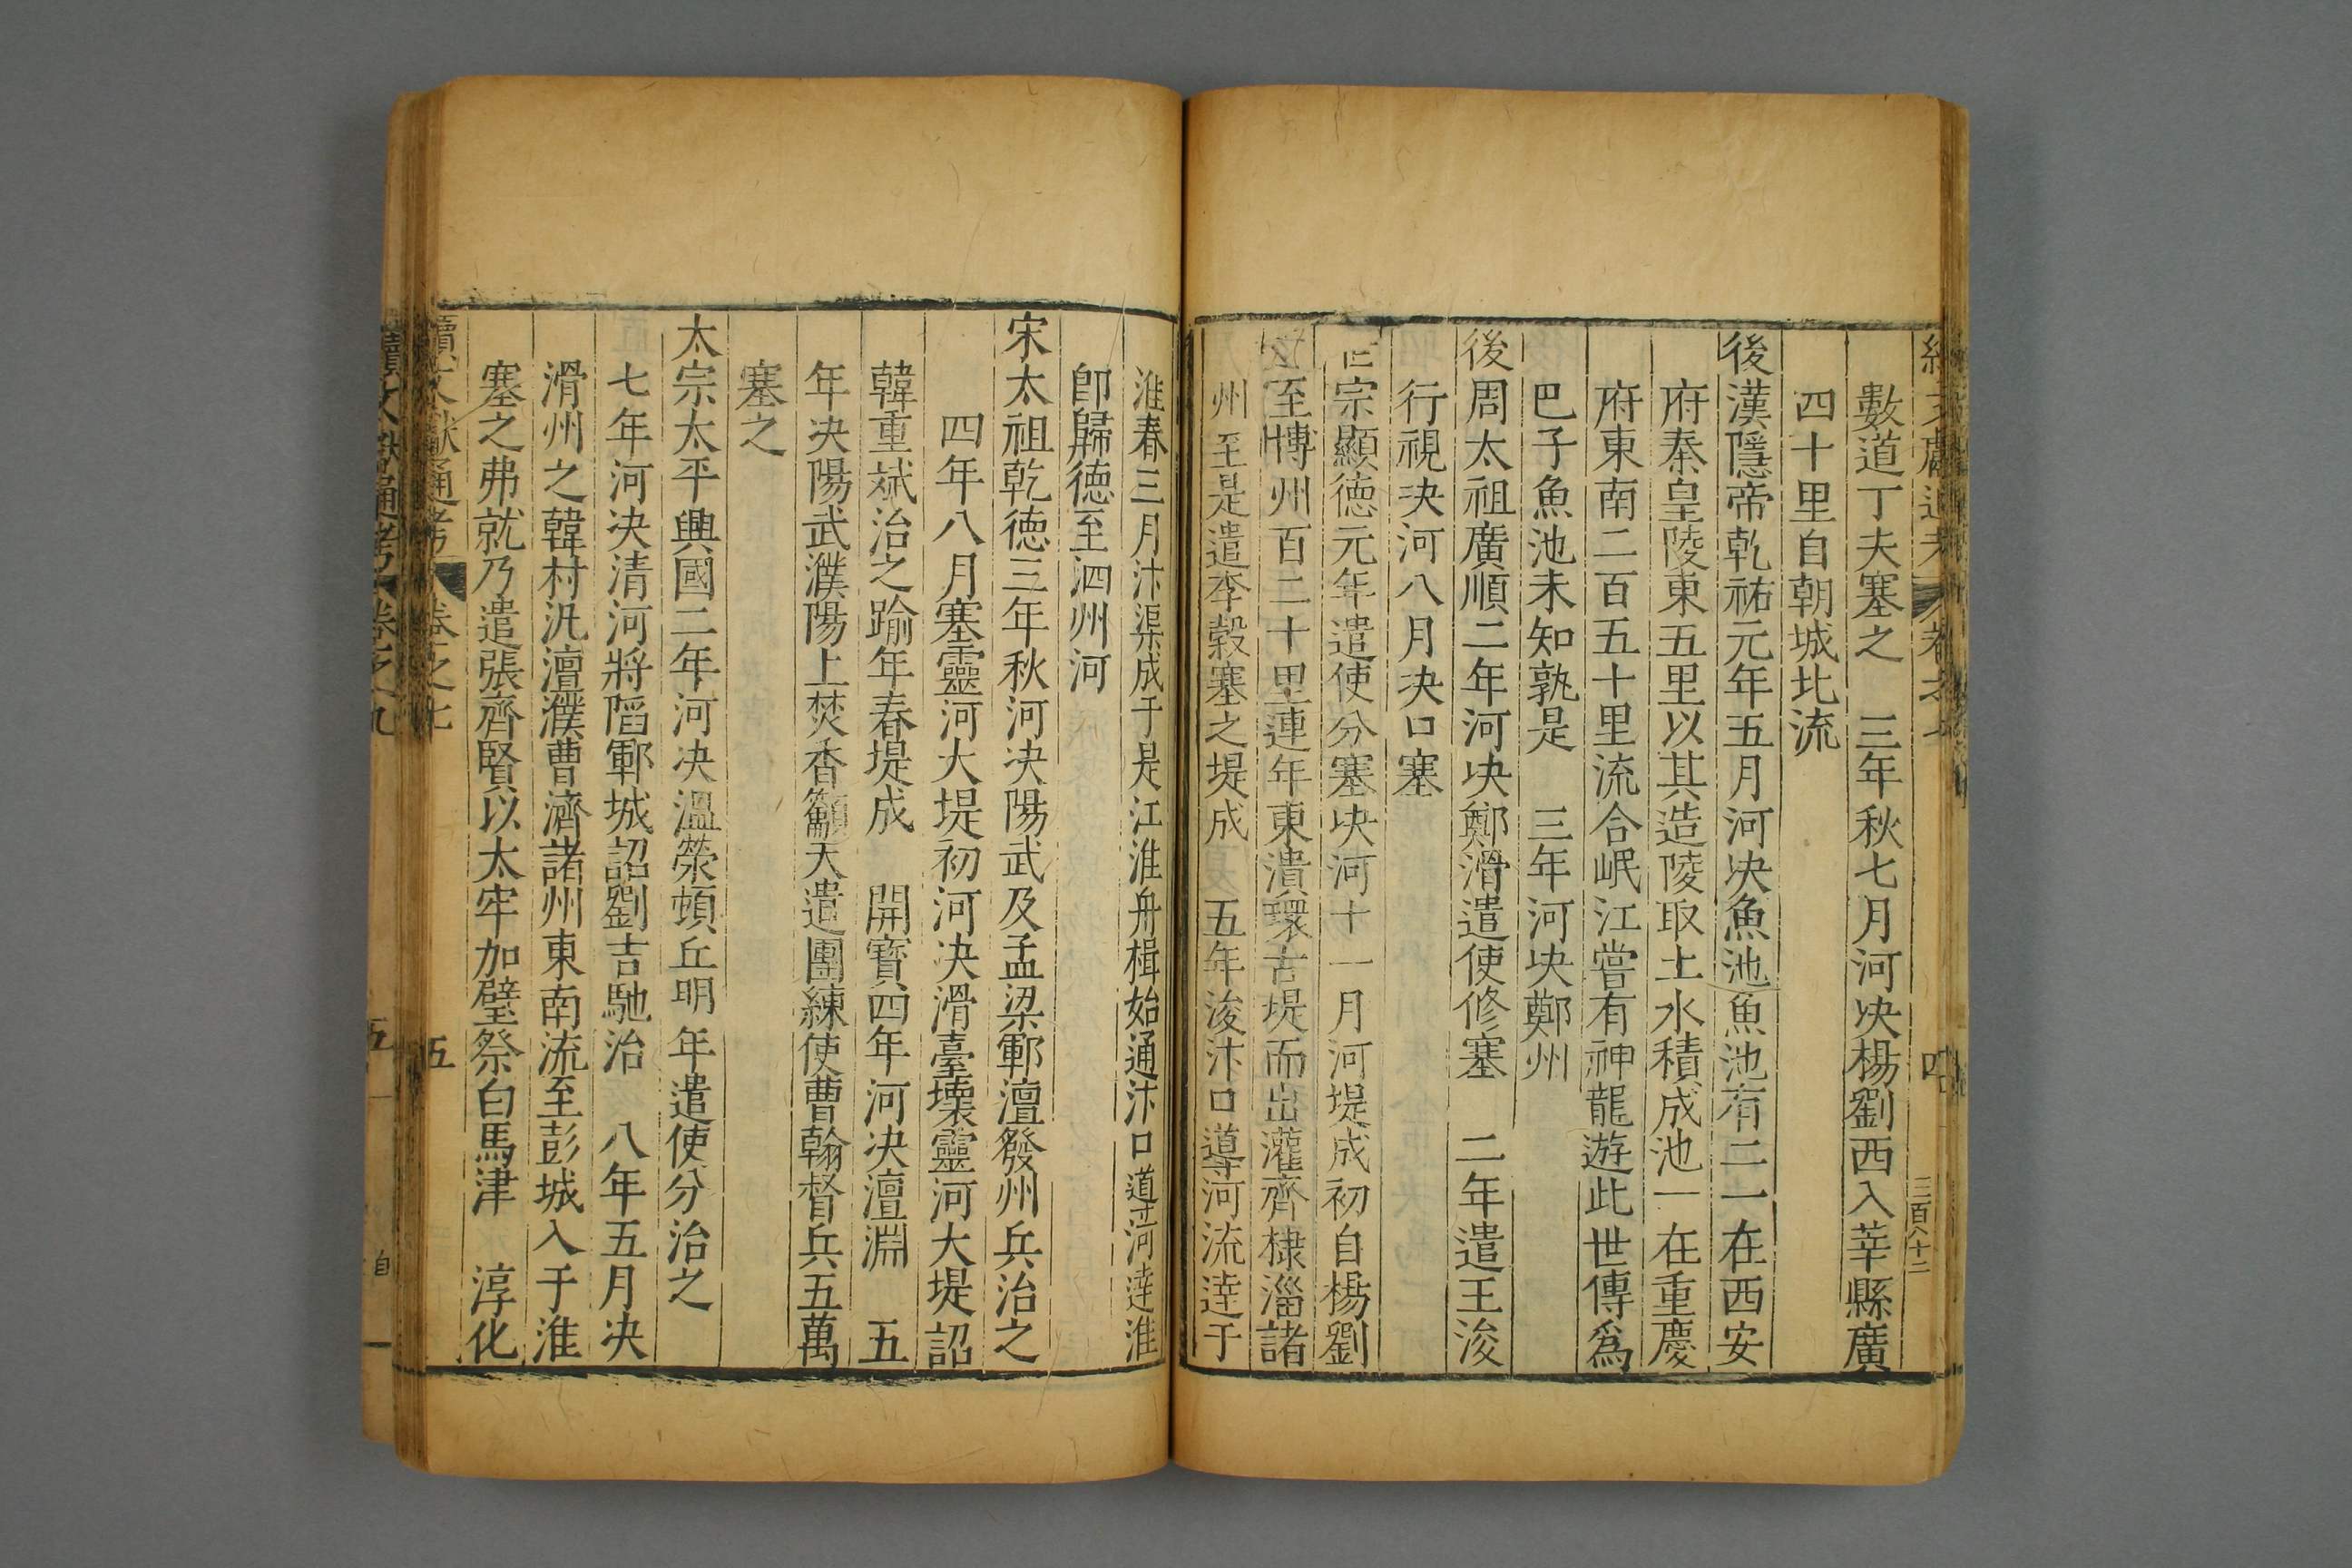 數道丁夫塞之　三年秋七月河决楊劉西入莘縣廣
四十里自朝城北流
後漢隱帝乾祐元年五月河决魚池魚池有二一在西安
府秦皇陵東五里以其造陵取土水積成池一在重慶
府東南二百五十里流合岷江嘗有神龍遊此世傳爲
巴子魚池未知孰是　三年河决鄭州
後周太祖廣順二年河决鄭滑遣使修塞　二年遣王浚
行視决河八月决口塞
世宗顯德元年遣使分塞决河十一月河堤成初自楊劉
至博州百二十里連年東潰環古堤而出灌齊棣淄諸
州至是遣李穀塞之堤成　五年浚汴口導河流逹于
淮春三月汴渠成于是江淮舟楫始通汴口道河逹淮
卽歸德至泗州河
宋太祖乾德三年秋河决陽武及孟梁鄆澶發州兵治之
四年八月塞靈河大堤初河决滑臺壞靈河大堤詔
韓重斌治之踰年春堤成　開寶四年河决澶淵　五
年决陽武濮陽上焚香籲天遣團練使曹翰督兵五萬
塞之
太宗太平興國二年河决溫滎頓丘明年遣使分治之
七年河决清河將陷鄆城詔劉吉馳治　八年五月决
滑州之韓村汎澶濮曹濟諸州東南流至彭城入于淮
塞之弗就乃遣張齊賢以太牢加璧祭白馬津　淳化
續文獻通考　卷之七　五